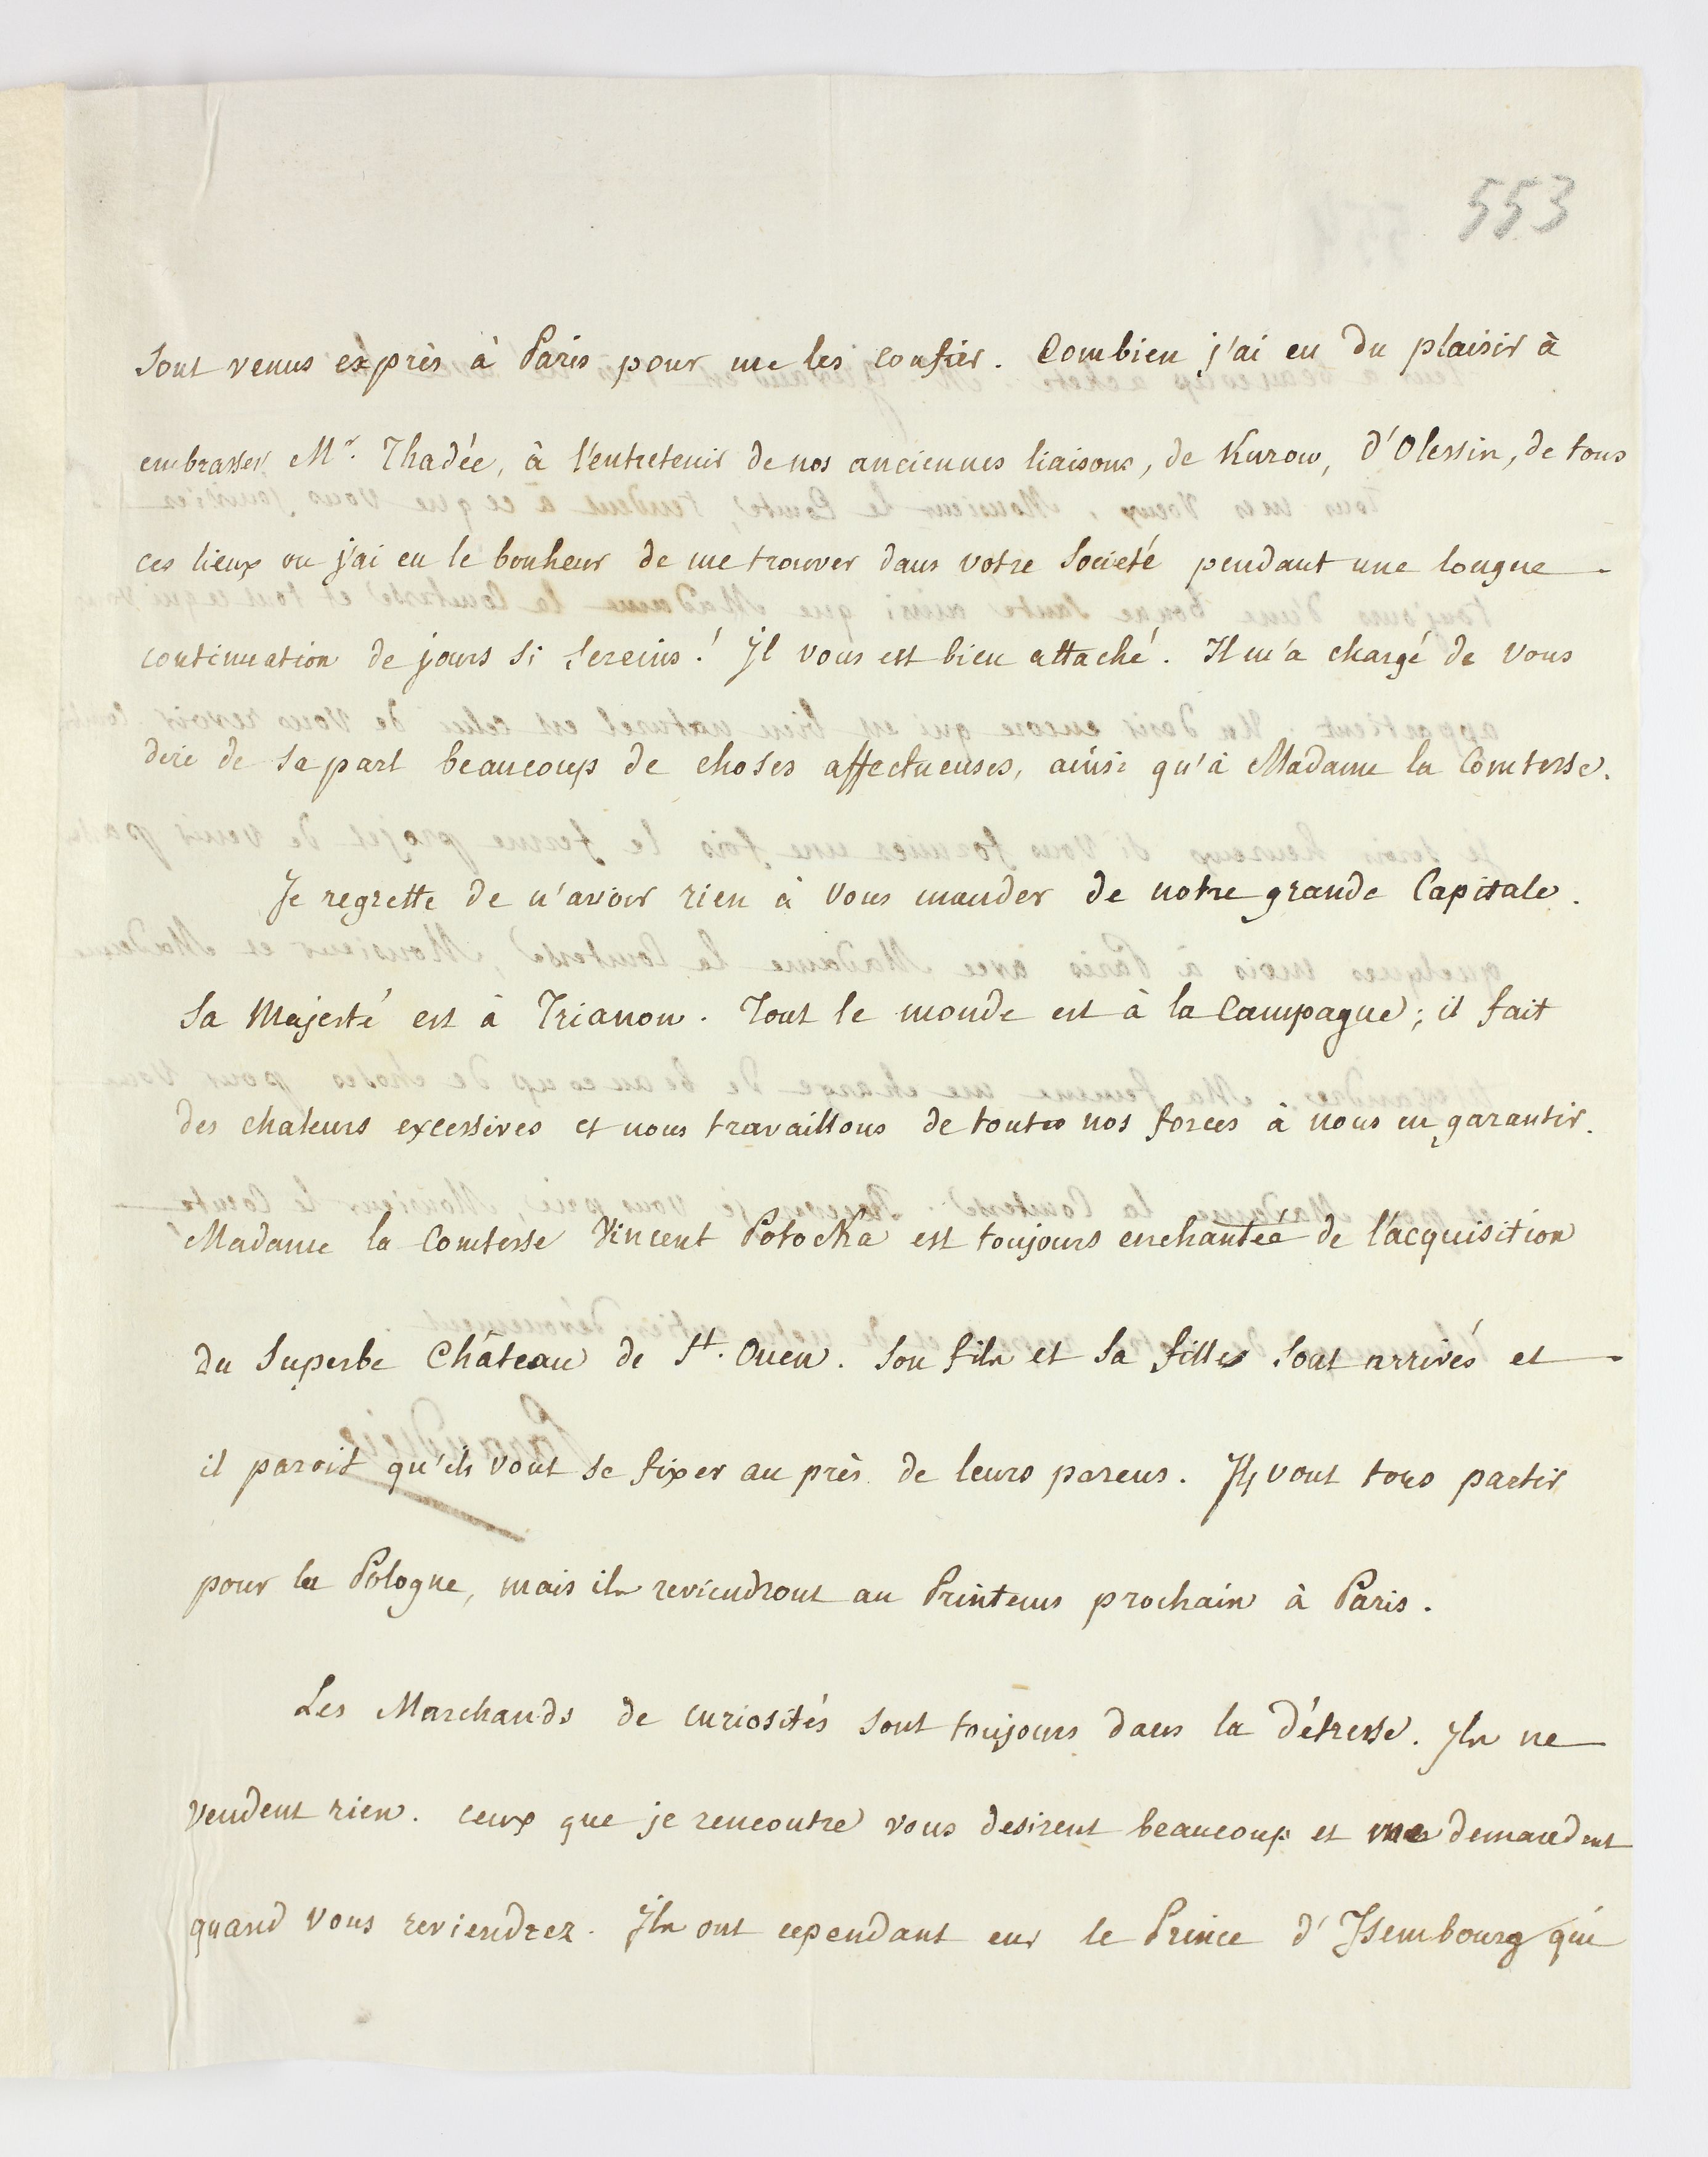 553
sont venus exprès à Paris pour me les confier. Combien j'ai eu du plaisir à
embrasser Mr. Thadée, à l'entretenir de nos anciennes liaisons, de Kurow, d'Olessin, de tous
ces lieux ou j'ai eu le bonheur de me trouver dans votre Societé pendant une longue
continuation de jours si sereins! Il vous est bien attaché. Il m'a chargé de vous
dire de sa part beaucoup de choses affectueuses, ainsi qu'à Madame la Comtesse.
Je regrette de n'avoir rien à vous mander de notre grande Capitale.
Sa Majesté est à Trianon. Tout le monde est à la Campagne; il fait
des chaleurs excessives et nous travaillons de toutes nos forces à nous en garantir.
Madame la Comtesse Vincent Potocka est toujours enchantée de l'acquisition
du Superbe Château de St. Ouen. Son fils et sa fille sont arrivés et
il paroit qu'ils vont se fixer au près de leurs parens. Ils vont tous partir
pour la Pologne, mais ils reviendront au Printems prochain à Paris.
Les Marchands de curiosités sont toujours dans la détresse. Ils ne
vendent rien. ceux que je rencontre vous desirent beaucoup et me demandent
quand vous reviendrez. Ils ont cependant eu le Prince d'Isembourg qui